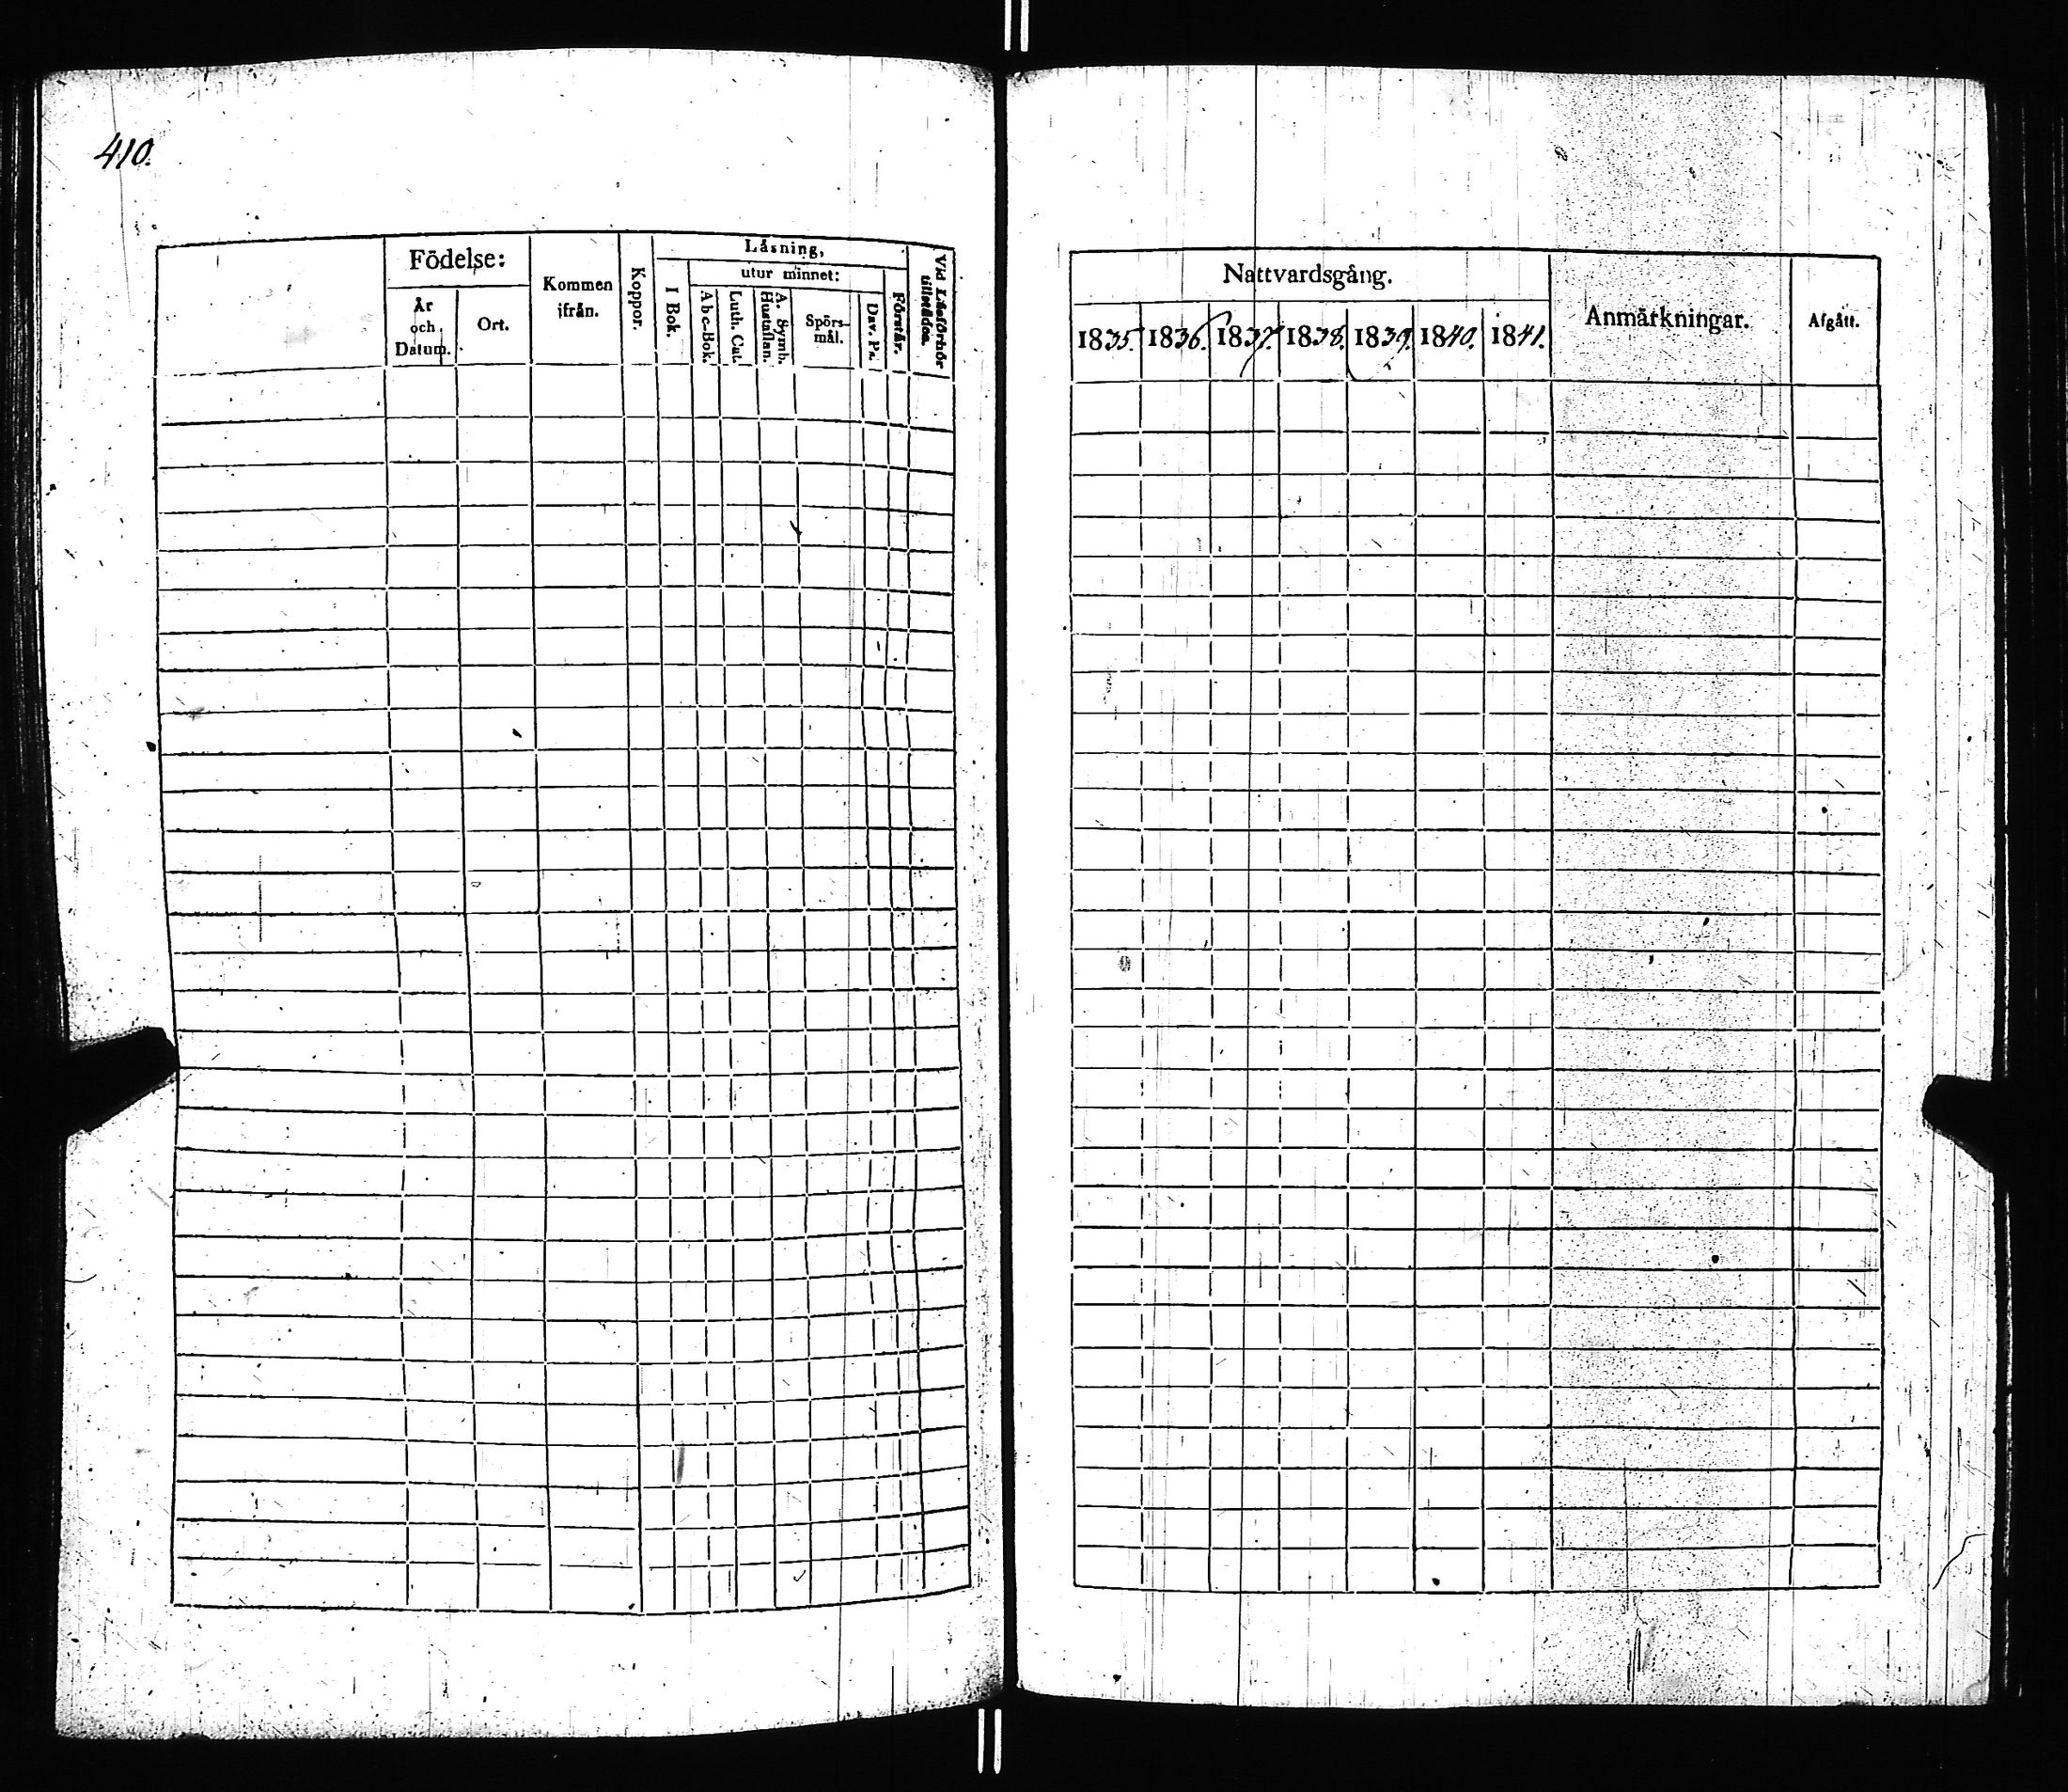 410.
Födelse:
År
och
Datum.
Ort.
Kommen
ifrån.
Koppor.
Läsning,
I Bok.
utur minnet:
Abc-Bok.
Luth. Cat.
A. Symb.
Hustaflan.
Spörs-
mål.
Dav. Ps.
Förstår.
Vid Läsförhör
tillstädes.
Nattvardsgång.
1835. 1836. 1837. 1838. 1839. 1840. 1841.
Anmärkningar.
Afgått.